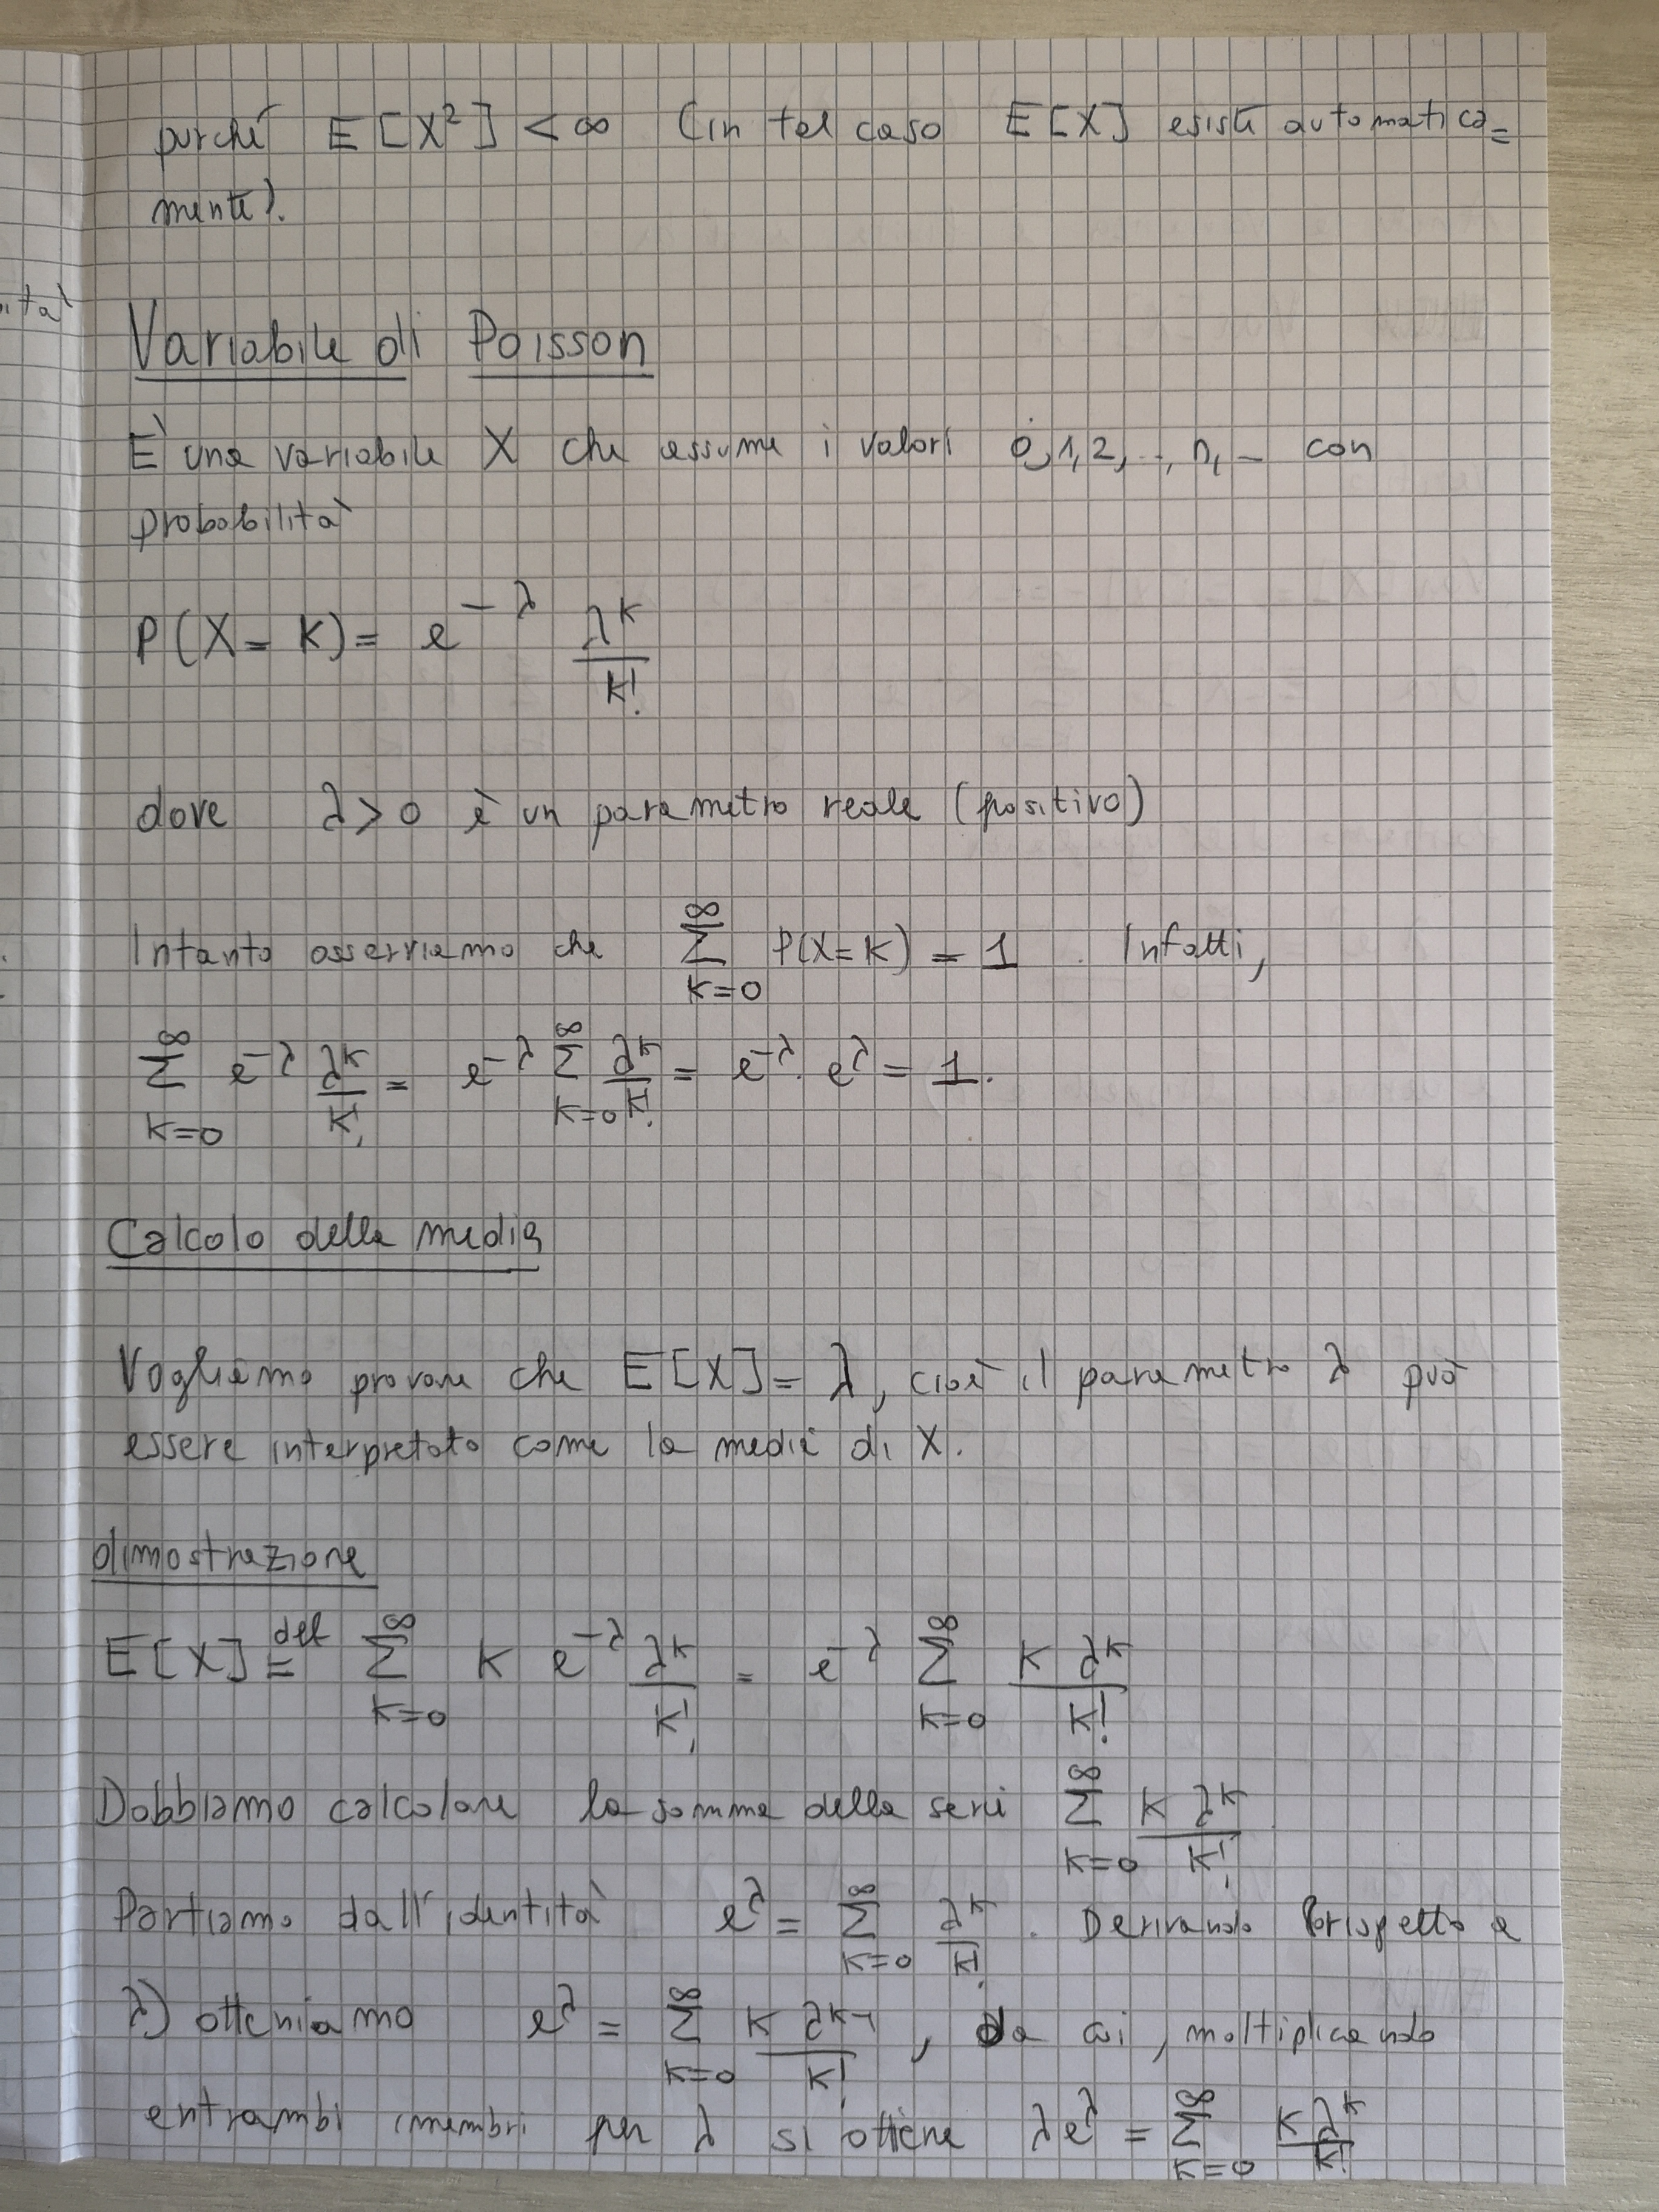 purché E[X²] < ∞ (in tal caso E[X] esiste automatica=
mente).
ità
Variabile di Poisson
E' una variabile X che assume i valori 0,1,2,.., n,.. con
probabilità
P(X = K) = e^{-λ} λ^K/K!
dove λ > 0 è un parametro reale (positivo)
Intanto osserviamo che ∑_{K=0}^{∞} P(X=K) = 1 . Infatti,
∑_{K=0}^{∞} e^{-λ} λ^K/K! = e^{-λ} ∑_{K=0}^{∞} λ^K/K! = e^{-λ} · e^λ = 1.
Calcolo della media
Vogliamo provare che E[X] = λ, cioè il parametro λ può
essere interpretato come la media di X.
dimostrazione
E[X] \overset{def}{=} ∑_{K=0}^{∞} K e^{-λ} λ^K/K! = e^{-λ} ∑_{K=0}^{∞} K λ^K/K!
Dobbiamo calcolare la somma della serie ∑_{K=0}^{∞} K λ^K/K!
Partiamo dall'identità e^λ = ∑_{K=0}^{∞} λ^K/K! . Derivando (rispetto a
λ) otteniamo e^λ = ∑_{K=0}^{∞} K λ^{K-1}/K! , da cui, moltiplicando
entrambi i membri per λ si ottiene λe^λ = ∑_{K=0}^{∞} K λ^K/K!